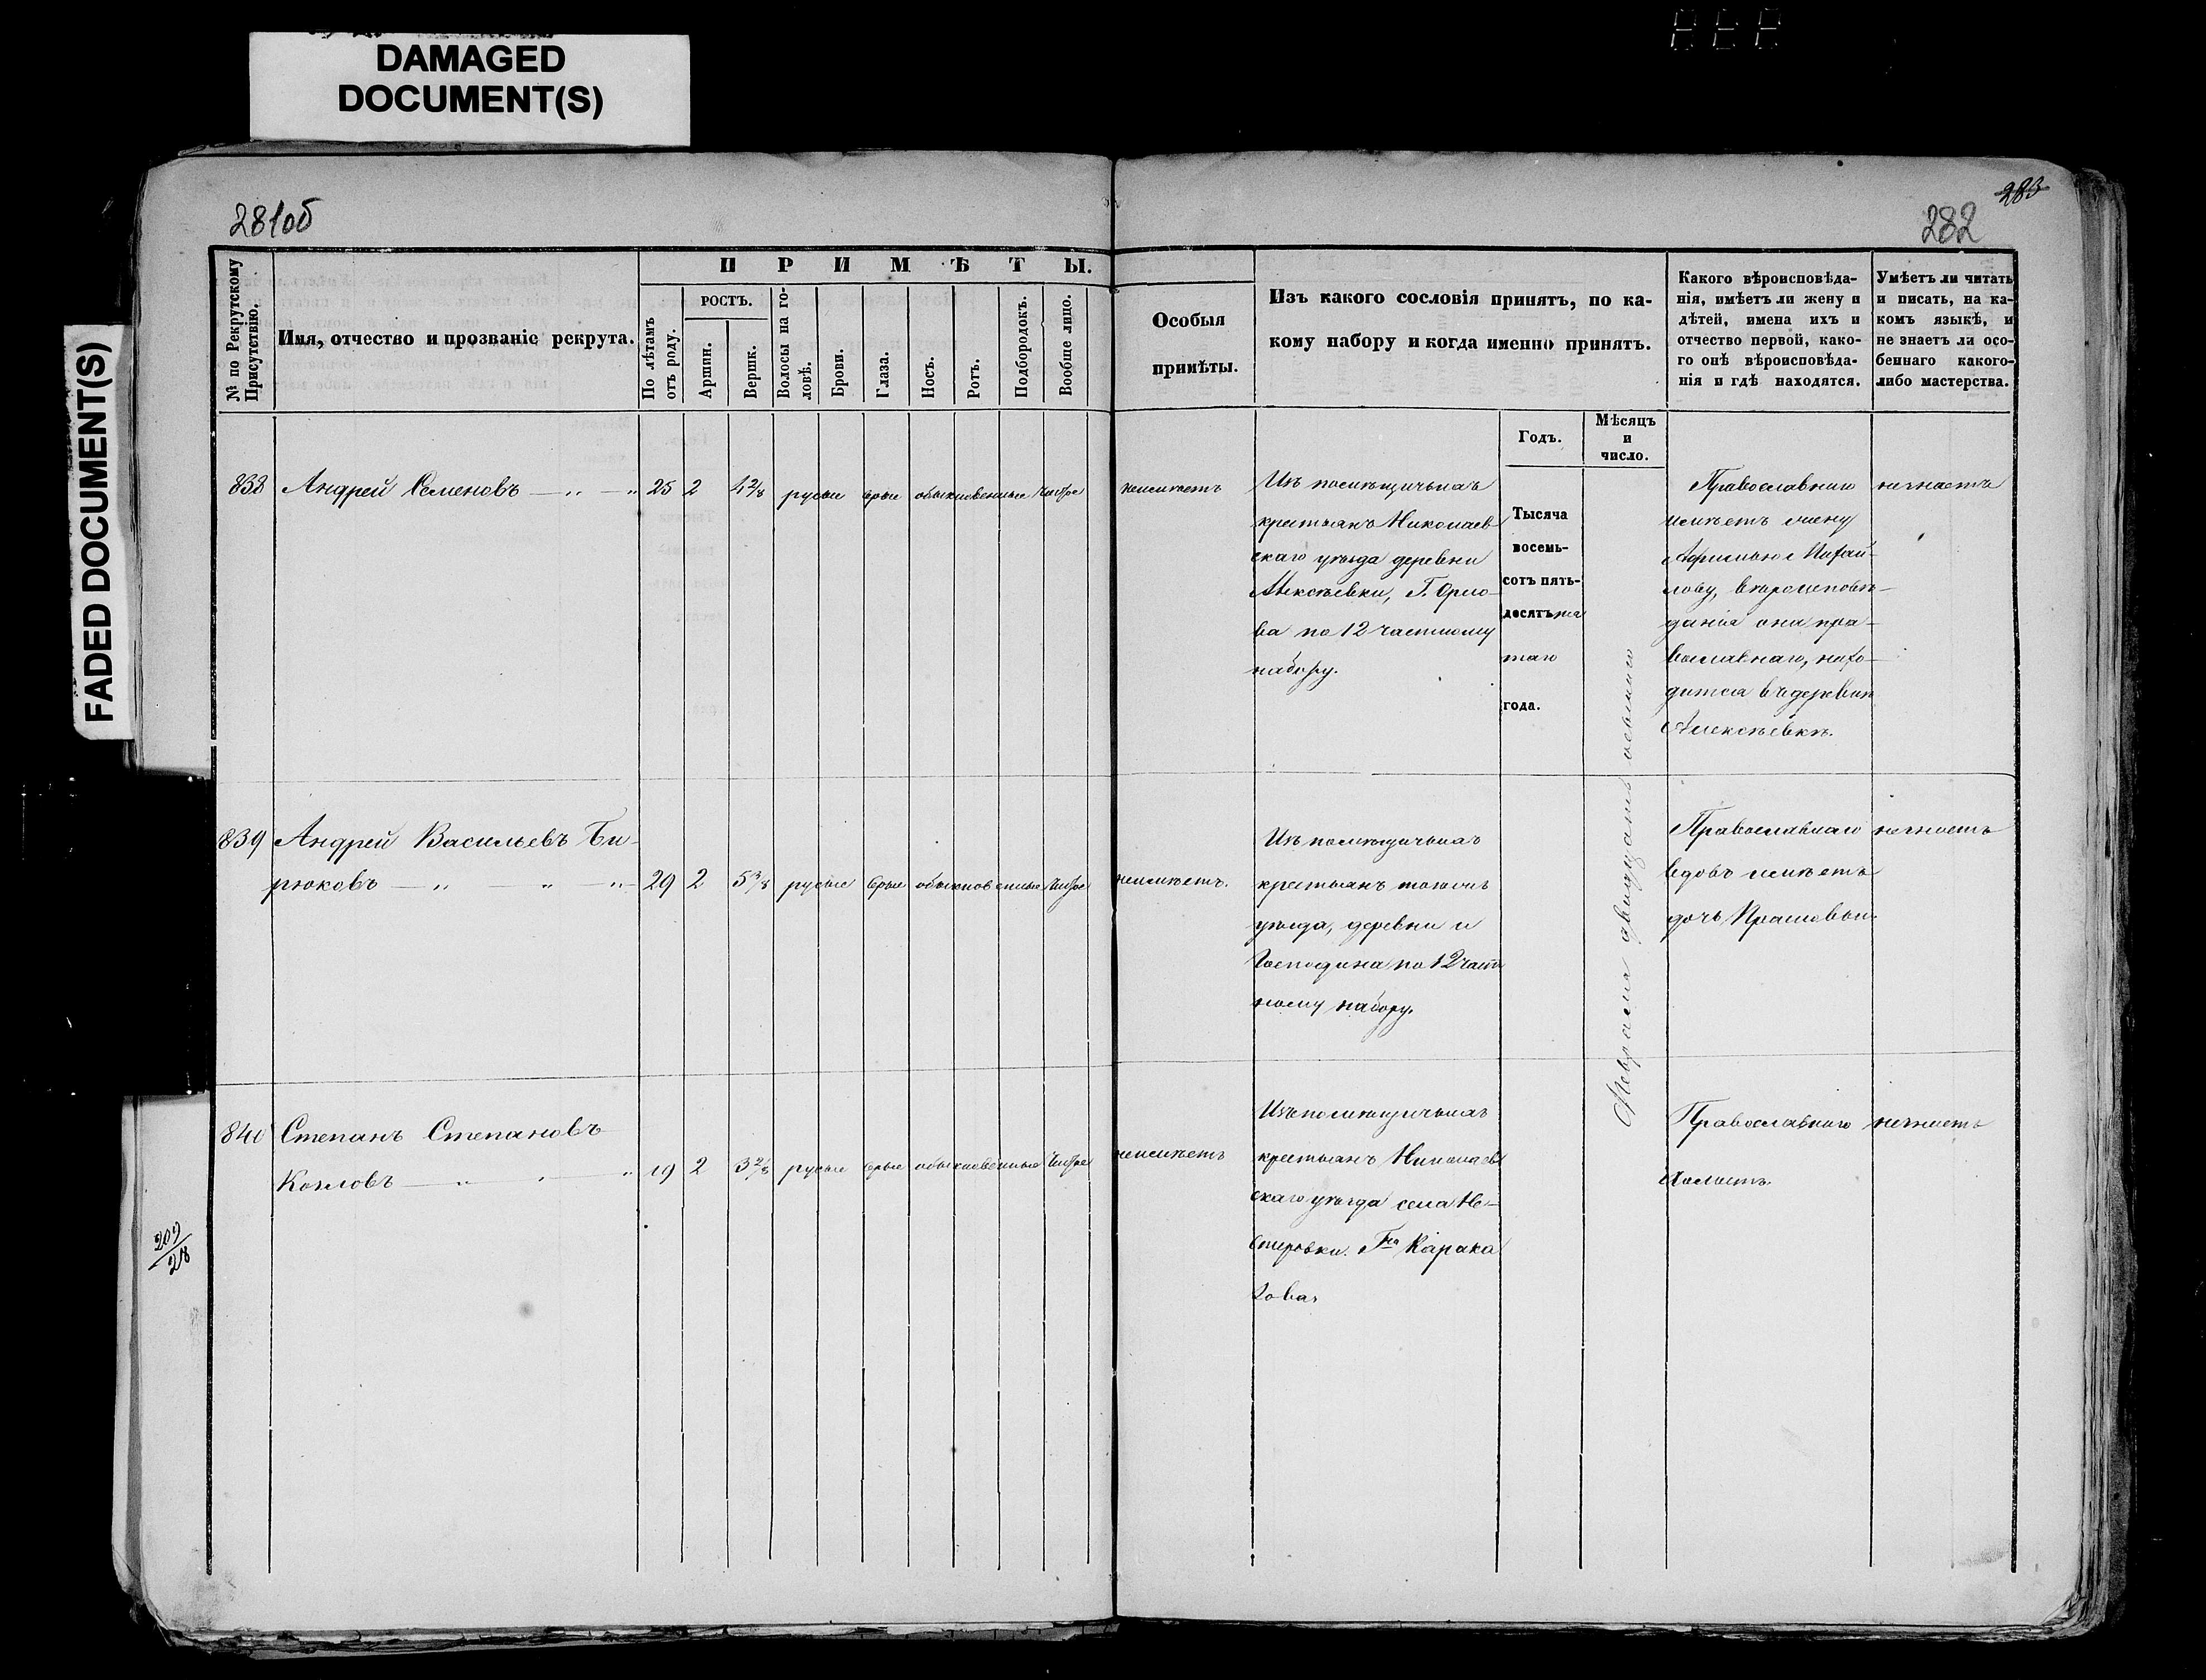 DAMAGED
DOCUMENT(S)
FADED DOCUMENT(S)
281об
283
282
№ по Рекрутскому
Присутствію.
Имя, отчество и прозваніе рекрута.
ПРИМѢТЫ.
По лѣтамъ
отъ роду.
РОСТЪ.
Аршин.
Вершк.
Волосы на го-
ловѣ.
Брови.
Глаза.
Носъ.
Ротъ.
Подбородокъ.
Вообще лицо.
Особыя
примѣты.
Изъ какого сословія принятъ, по ка-
кому набору и когда именно принятъ.
Годъ.
Мѣсяцъ
и
число.
Какого вѣроисповѣда-
нія, имѣетъ ли жену и
дѣтей, имена ихъ и
отчество первой, како-
го онѣ вѣроисповѣда-
нія и гдѣ находятся.
Умѣетъ ли читать
и писать, на ка-
комъ языкѣ, и
не знаетъ ли осо-
беннаго какого-
либо мастерства.
838 Андрей Семеновъ — „ — „ 25 2 4 2/8 русые сѣрые обыкновенные чистое неимѣетъ
Изъ помѣщичьихъ
крестьянъ Николаев
скаго уѣзда деревни
Алексѣевки, Г. Орло-
ва по 12 частному
набору.
Тысяча
восемь-
сотъ пять-
десятъ пя
таго
года.
Февраля двадцать осьмаго
Православнаго
имѣетъ жену
Афимью Михай-
лову, вѣроисповѣ-
данія она пра-
вославнаго, нахо-
дится въ деревнѣ
Алексѣевкѣ.
незнаетъ
839 Андрей Васильевъ Би-
рюковъ — „ — „ — „ 29 2 5 3/8 русые сѣрые обыкновенные чистое неимѣетъ.
Изъ помѣщичьихъ
крестьянъ тогожъ
уѣзда, деревни и
Господина по 12 част
ному набору.
Православнаго
вдовъ имѣетъ
дочь
незнаетъ
840 Степанъ Степановъ
Козловъ — „ — „ 19 2 3 2/8 русые сѣрые обыкновенные чистое неимѣетъ
Изъ помѣщичьихъ
крестьянъ Николаев
скаго уѣзда села Не-
стеровки. Гна Карака
зова.
Православнаго
Холостъ.
незнаетъ
209
218